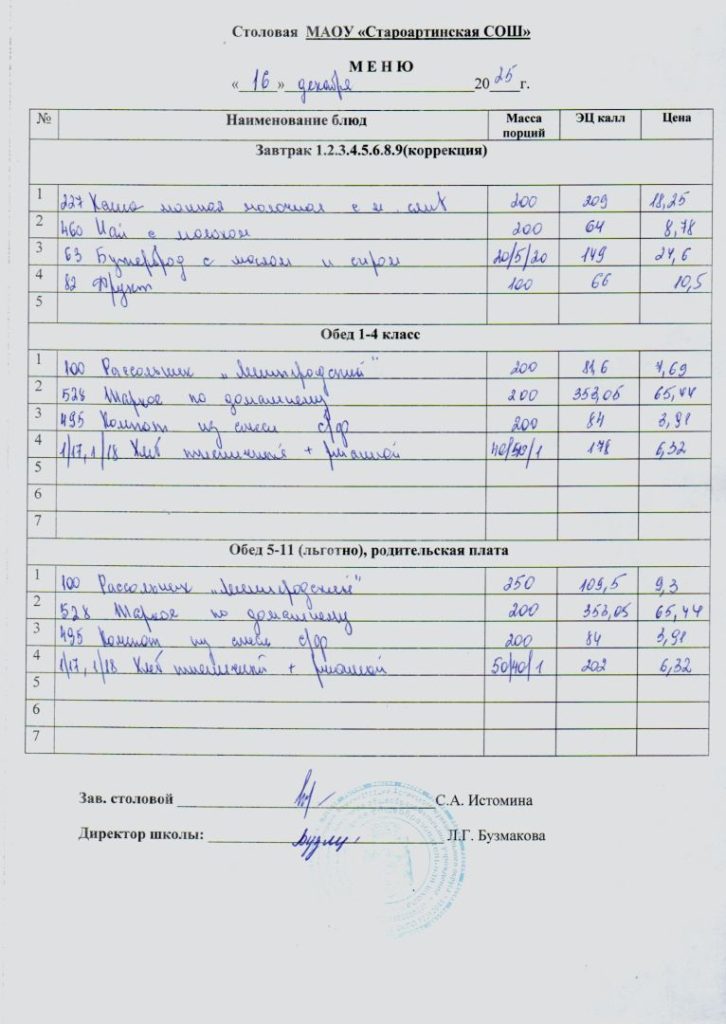 Столовая МАОУ «Староартинская СОШ»
М Е Н Ю
« 16 » декабря 2025 г.
№ Наименование блюд Масса порций ЭЦ калл Цена
Завтрак 1.2.3.4.5.6.8.9(коррекция)
1 227 Каша манная молочная с м. слив 200 209 18,25
2 460 Чай с молоком 200 64 8,78
3 63 Бутерброд с маслом и сыром 20/5/20 149 24,6
4 82 Фрукт 100 66 10,5
5
Обед 1-4 класс
1 100 Рассольник „Ленинградский" 200 81,6 7,69
2 528 Жаркое по домашнему 200 353,05 65,44
3 495 Компот из смеси с/ф 200 84 3,91
4 1/17, 1/18 Хлеб пшеничный + ржаной 40/30/1 178 6,32
5
6
7
Обед 5-11 (льготно), родительская плата
1 100 Рассольник „Ленинградский" 250 109,5 9,3
2 528 Жаркое по домашнему 200 353,05 65,44
3 495 Компот из смеси с/ф 200 84 3,91
4 1/17, 1/18 Хлеб пшеничный + ржаной 50/40/1 202 6,32
5
6
7
Зав. столовой С.А. Истомина
Директор школы: Л.Г. Бузмакова